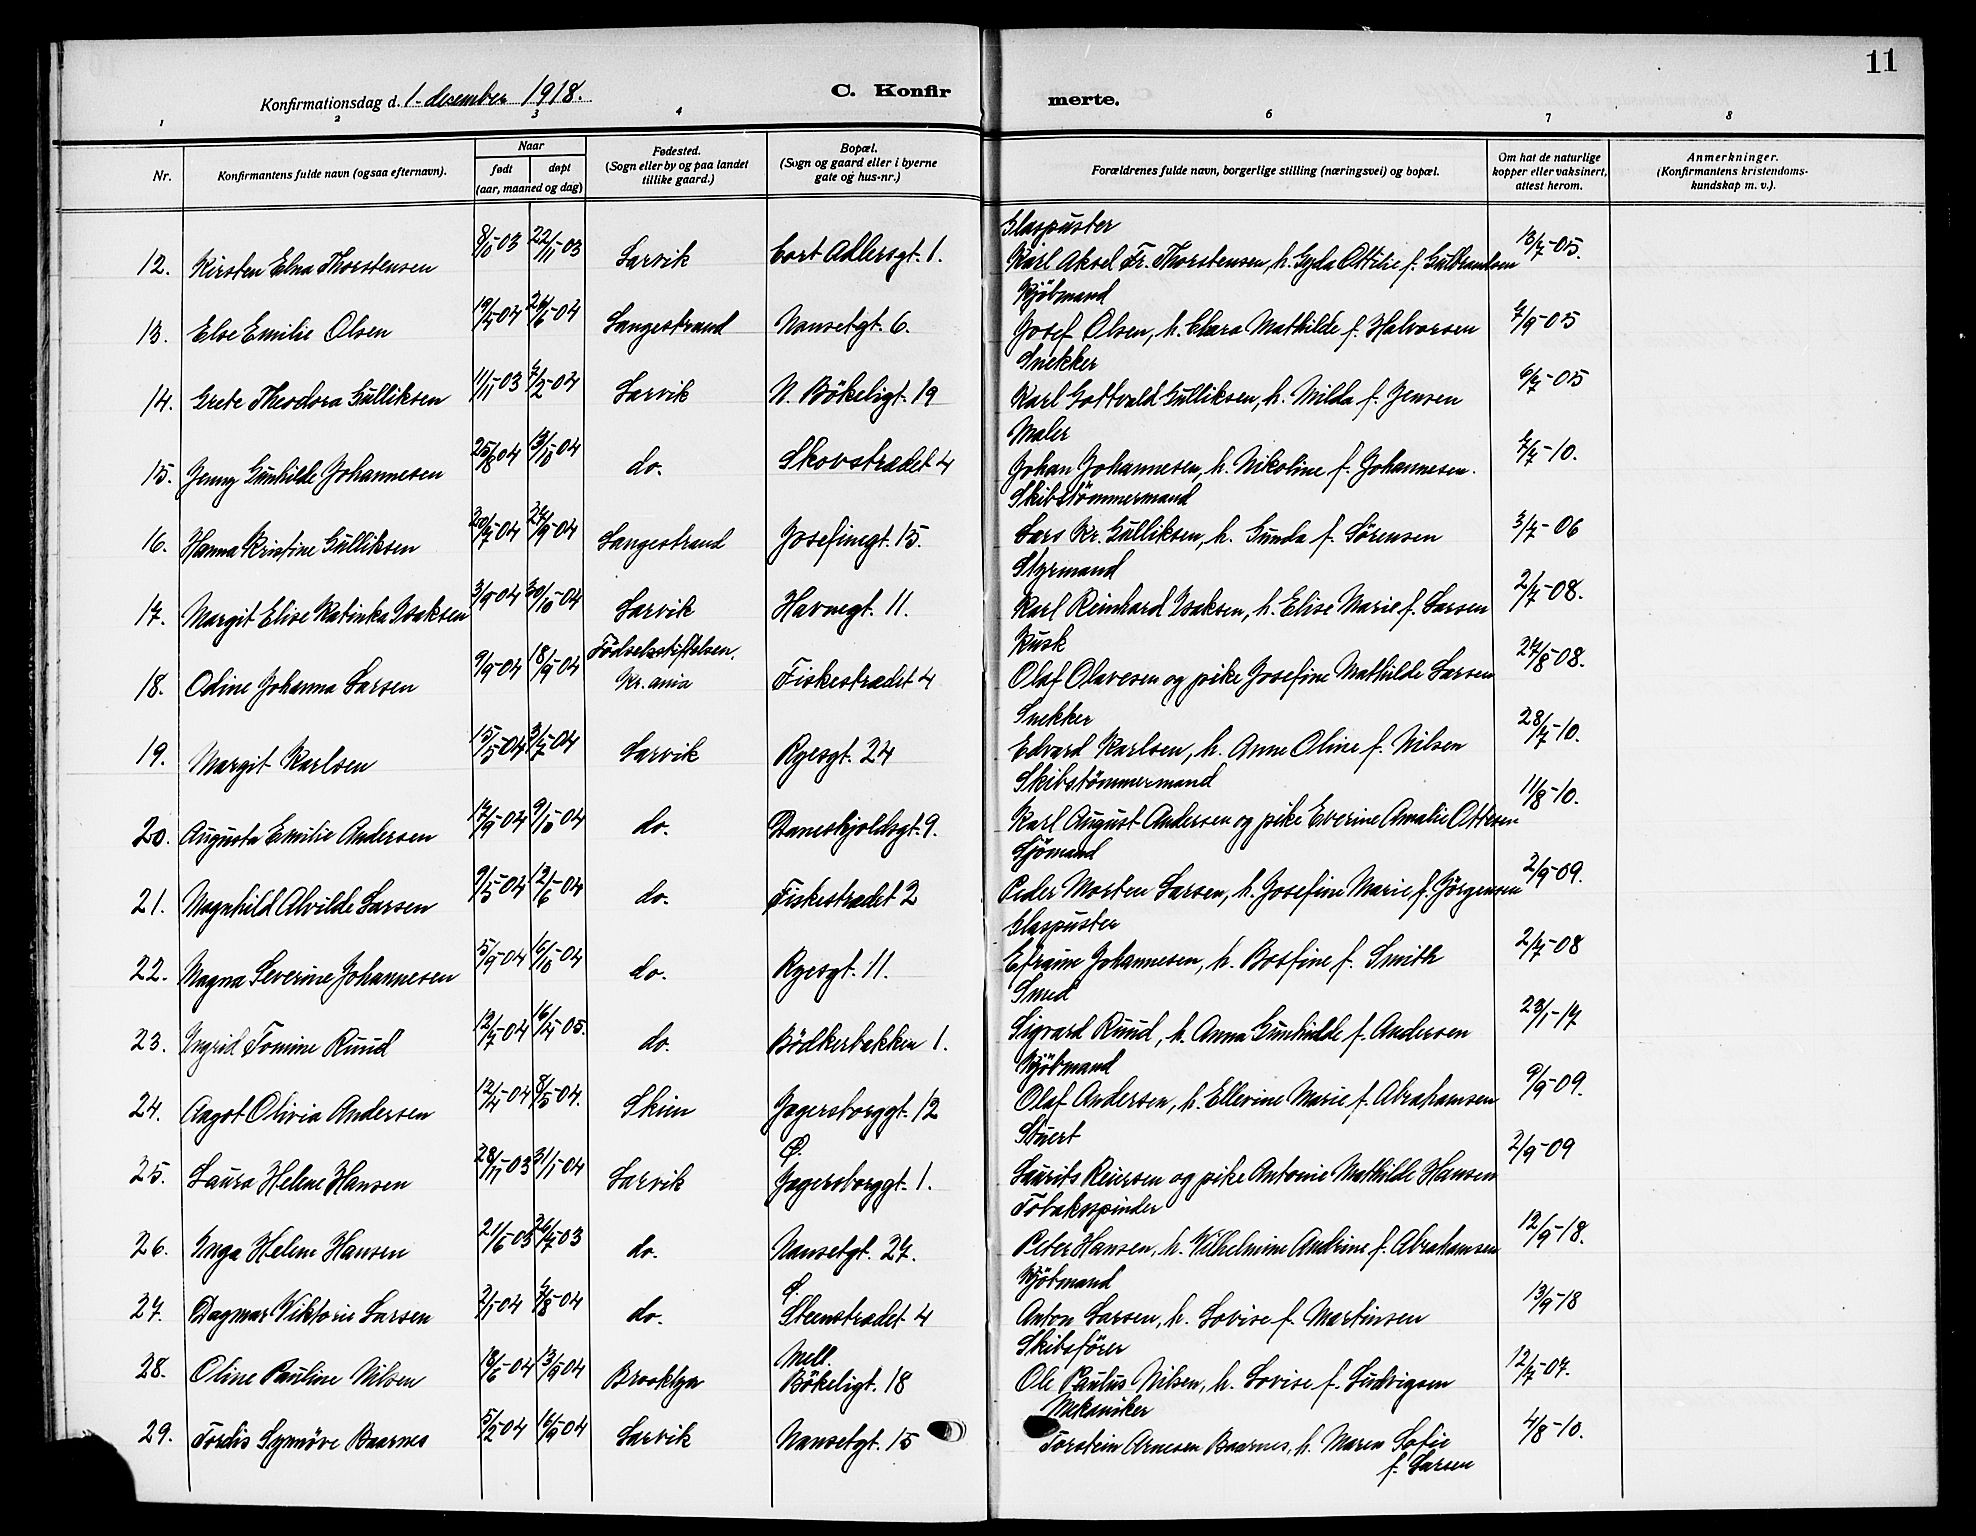 11
Konfirmationsdag d. 1. desember 1918.
C. Konfir merte.
1 2 3 4 6 7 8
Nr. Konfirmantens fulde navn (ogsaa efternavn). Naar født døpt (aar, maaned og dag) Fødested. (Sogn eller by og paa landet tillike gaard.) Bopæl. (Sogn og gaard eller i byerne gate og hus-nr.) Forældrenes fulde navn, borgerlige stilling (næringsvei) og bopæl. Om hat de naturlige kopper eller vaksinert, attest herom. Anmerkninger. (Konfirmantens kristendoms-kundskap m. v.).
Glaspuster
12. Kirsten Elna Thorstensen 8/10-03 22/11-03 Larvik Cort Adlersgt. 1. Karl Aksel Fr. Thorstensen, h. Gyda Ottilie f. Gulbrandsen 13/7-05.
Kjöbmand
13. Else Emilie Olsen 19/4-04 26/6-04 Langestrand Nansetgt. 6. Josef Olsen, h. Clara Mathilde f. Halvorsen 7/9-05
Snekker
14. Grete Theodora Gulliksen 11/11-03 7/2-04 Larvik N. Bökeligt. 19 Karl Gottvald Gulliksen, h. Milda f. Jensen 6/7-05
Maler
15. Jenny Gunhilde Johannesen 25/8-04 13/10-04 do. Skovstrædet 4 Johan Johannesen, h. Nikoline f. Johannesen. 7/7-10.
Skibstömmermand
16. Hanna Kristine Gulliksen 20/7-04 24/9-04 Langestrand Josefinegt. 15. Lars Kr. Gulliksen, h. Gunda f. Sörensen 3/7-06
Styrmand
17. Margit Elise Katinka Isaksen 3/9-04 30/10-04 Larvik Havnegt. 11. Karl Reinhard Isaksen, h. Elise Marie f. Larsen 2/7-08.
Födselsstiftelsen, Kusk
18. Odine Johanna Larsen 9/9-04 18/9-04 Kr.ania Fiskestrædet 4 Olaf Olavesen og pike Josefine Mathilde Larsen 27/8-08.
Snekker
19. Margit Karlsen 15/5-04 3/7-04 Larvik Ryesgt. 24 Edvard Karlsen, h. Anne Oline f. Nilsen 28/7-10.
Skibstömmermand
20. Augusta Emilie Andersen 17/9-04 9/10-04 do. Daneskjoldsgt. 9. Karl August Andersen og pike Everine Amalie Ottesen 11/8-10.
Sjömand
21. Magnhild Alvilde Larsen 9/5-04 12/6-04 do. Fiskestrædet 2 Peder Morten Larsen, h. Josefine Marie f. Jörgensen 2/9-09.
Glaspuster
22. Magna Severine Johannesen 5/9-04 16/10-04 do. Ryesgt. 11. Efraim Johannesen, h. Bosfine f. Smith 2/7-08
Smed
23. Ingrid Tomine Ruud 12/7-04 16/4-05. do. Bödkerbakken 1. Sigvard Ruud, h. Anna Gunhilde f. Andersen 23/1-17
Kjöbmand
24. Aagot Olivia Andersen 12/4-04 8/5-04. Skien Jegersborggt. 12 Olaf Andersen, h. Ellevine Marie f. Abrahamsen 9/9-09.
Ø. Stuert
25. Laura Helene Hansen 28/11-03 31/1-04 Larvik Jegersborggt. 1. Laurits Reiersen og pike Antonie Mathilde Hansen 2/9-09
Tobakspinder
26. Inga Helene Hansen 21/6-03 26/7-03 do. Nansetgt. 27. Peter Hansen, h. Vilhelmine Andrine f. Abrahamsen 12/9-18.
Ø. Kjöbmand
27. Dagmar Viktorie Larsen 2/1-04 7/8-04 do. Steenstrædet 4 Anton Larsen, h. Lovise f. Martinsen 13/9-18
Mell. Skibsförer
28. Oline Pauline Nilsen 18/6-04 13/9-04 Brooklyn Bökeligt. 18 Ole Paulus Nilsen, h. Lovise f. Ludvigsen 12/7-07.
Mekaniker
29. Tordis Synnöve Baarnes 5/2-04 16/9-04 Larvik Nansetgt. 15 Torstein Arnesen Baarnes, h. Maren Sofie 4/8-10.
f. Larsen